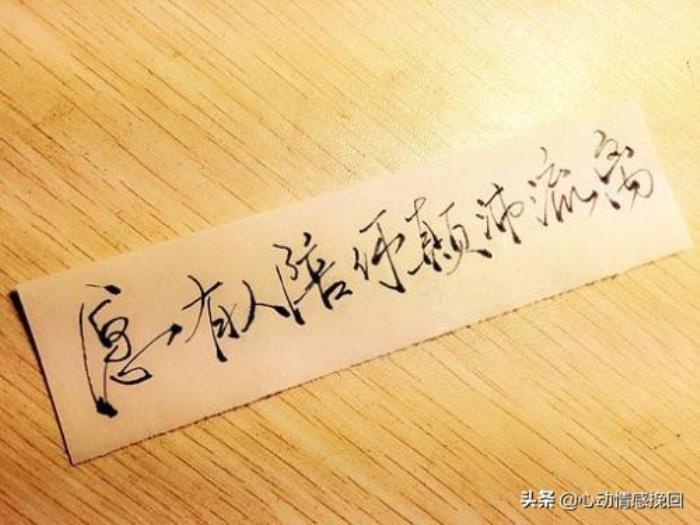 愿有人陪你颠沛流离
头条 @心动情感挽回